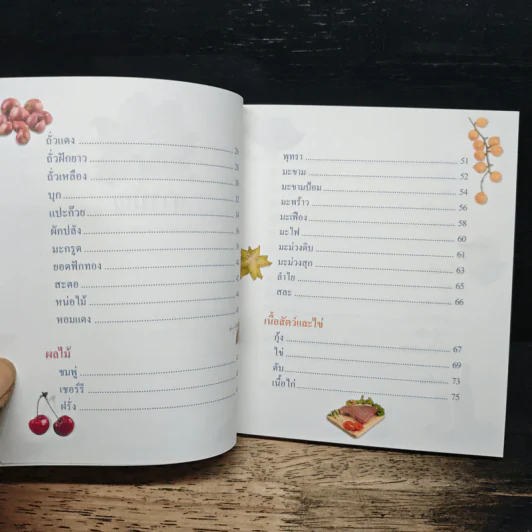 ถั่วแดง
ถั่วฝักยาว
ถั่วเหลือง
บุก
แปะก๊วย
ผักปลัง
มะกรูด
ยอดฟักทอง
สะตอ
หน่อไม้
หอมแดง
ผลไม้
ชมพู่
เชอร์รี
ฝรั่ง
พุทรา 51
มะขาม 52
มะขามป้อม 54
มะพร้าว 56
มะเฟือง 58
มะไฟ 60
มะม่วงดิบ 61
มะม่วงสุก 63
ลำไย 65
สละ 66
เนื้อสัตว์และไข่
กุ้ง 67
ไข่ 69
ตับ 73
เนื้อไก่ 75